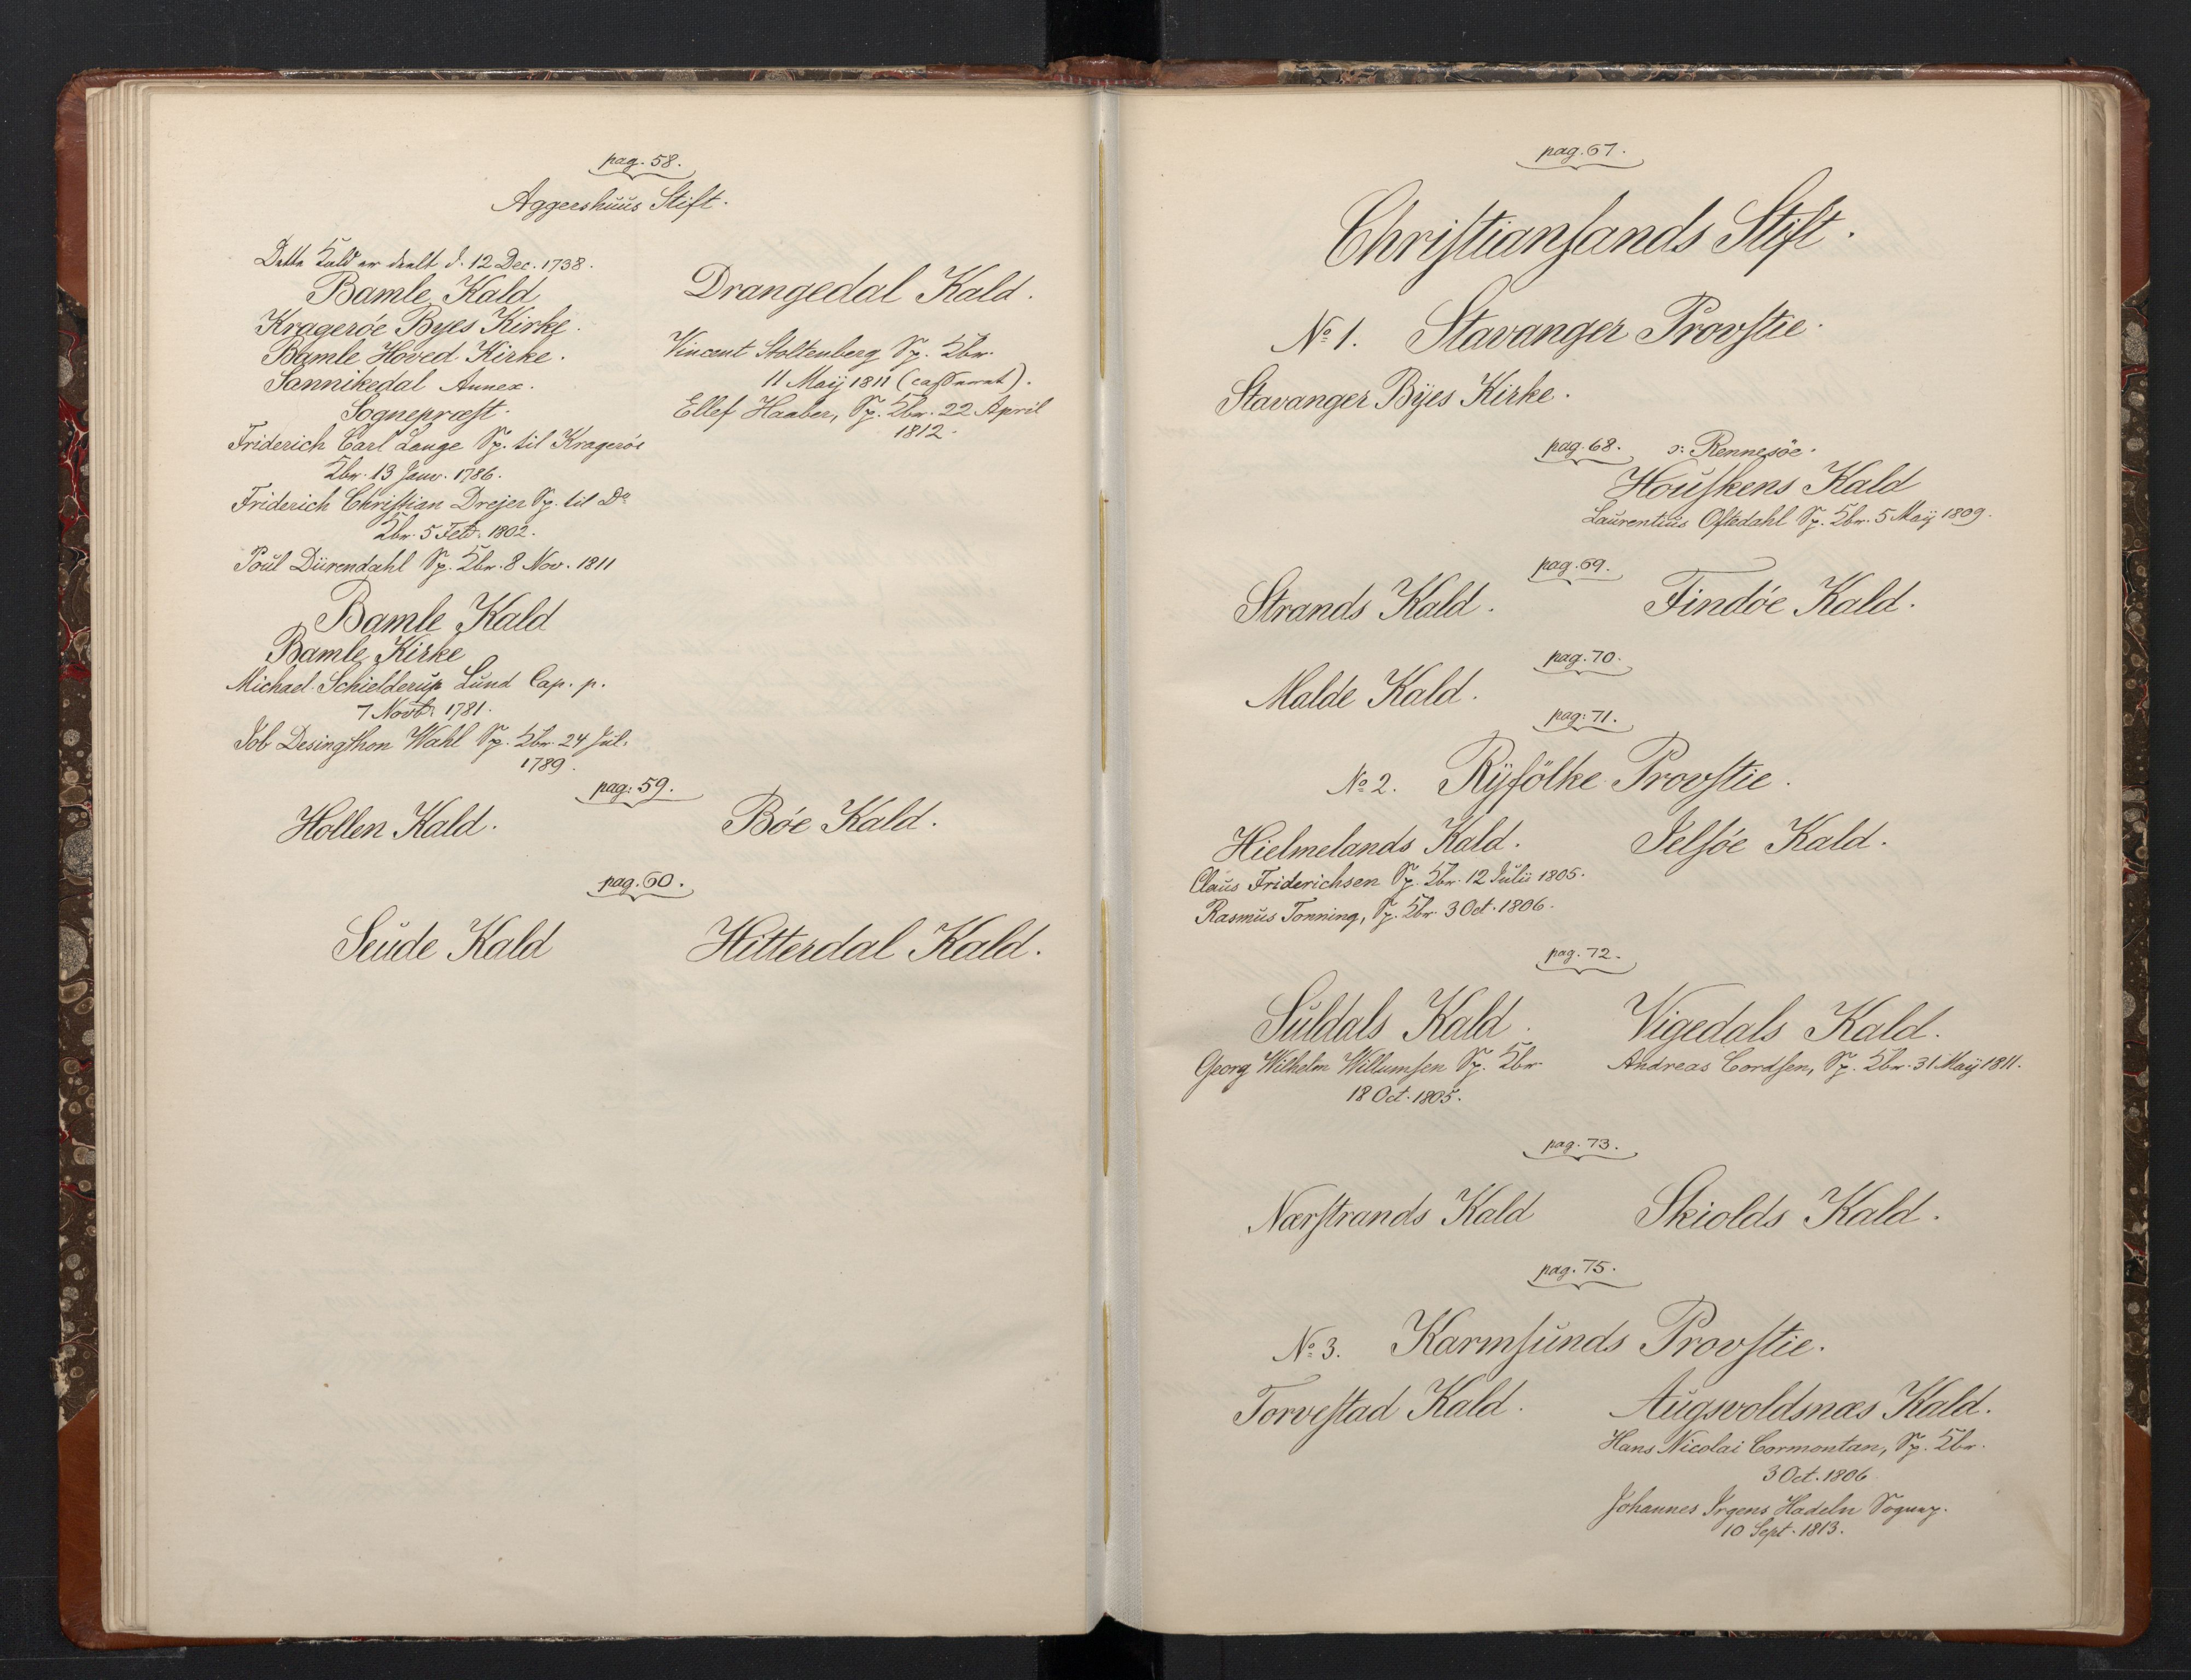 pag. 58.
Aggershuus Stift.
Dette Kald er deelt d. 12 Dec. 1738.
Bamle Kald
Kragerøe Byes Kirke.
Bamle Hoved-Kirke.
Sannikedal Annex.
Sognepræst.
Friderich Carl Lange Sp. til Kragerøe
Kbr. 13 Janv. 1786.
Friderich Christian Drejer Sp. til Do
Kbr. 5 Febr. 1802.
Poul Dürendahl Sp. Kbr. 8 Nov. 1811
Bamle Kald
Bamle Kirke
Michael Schielderup Lund Cap. p.
7 Novbr 1781.
Job Desingthon Wahl Sp. Kbr. 24 Jul.
1789.
Drangedal Kald.
Vincent Stoltenberg Sp. Kbr.
11 Maij 1811 (casseret).
Ellef Haaber, Sp. Kbr. 22 April
1812.
pag: 59.
Hollen Kald.
Bøe Kald.
pag. 60.
Seude Kald
Hitterdal Kald.
pag. 67.
Christiansands Stift.
No 1. Stavanger Provstie.
Stavanger Byes Kirke.
pag. 68. ɔ: Rennesøe.
Houskens Kald
Laurentius Oftedahl Sp. Kbr. 5 Maij 1809.
pag. 69.
Strands Kald.
Findøe Kald.
pag. 70.
Malde Kald.
pag: 71.
No 2. Ryfölke Provstie.
Hielmelands Kald.
Claus Friderichsen Sp. Kbr. 12 Julii 1805.
Rasmus Tonning, Sp. Kbr. 3 Oct. 1806.
Jelsøe Kald.
pag. 72.
Suldals Kald.
Georg Wilhelm Willumsen Sp. Kbr.
18 Oct. 1805.
Vigedals Kald.
Andreas Cordsen, Sp. Kbr. 31 Maij 1811.
pag. 73.
Nærstrands Kald
Skiolds Kald.
pag. 75.
No 3. Karmsunds Provstie.
Torvestad Kald.
Augvoldsnæs Kald.
Hans Nicolai Cormontan, Sp. Kbr.
3 Oct. 1806
Johannes Irgens Hadeln Sognep.
10 Sept. 1813.